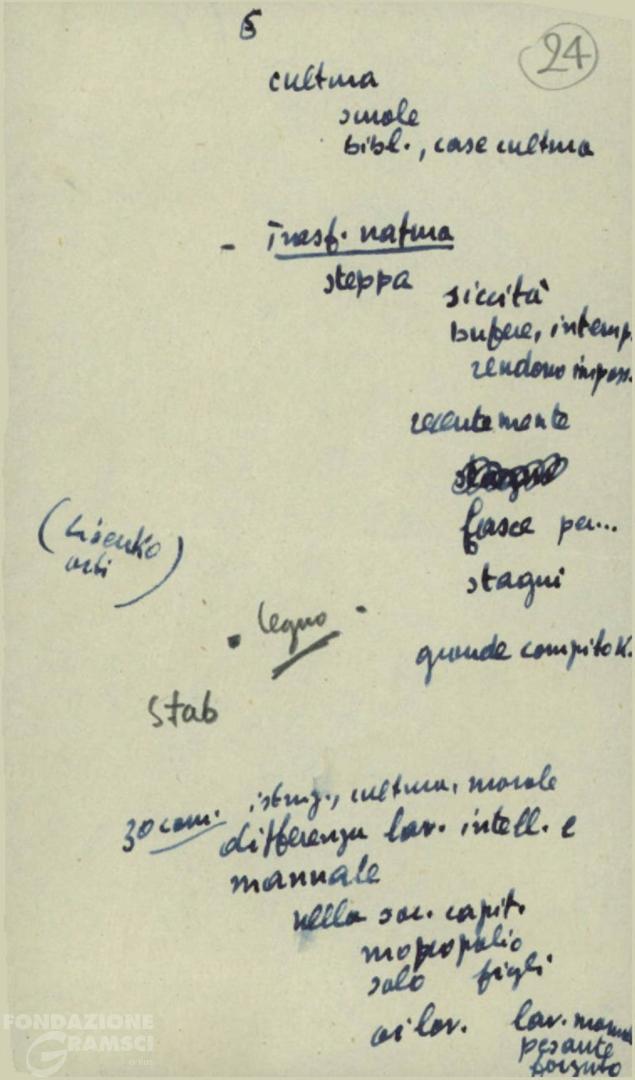 5
24
cultura
scuole
bibl., case cultura
- Trasf. natura
steppa
siccità
bufere, intemp.
rendono imposs.
recentemente
fasce per...
stagni
(Lisenko
orti)
. legno .
grande compito K.
Stab
30 com. istruz., cultura, morale
differenza lav. intell. e
manuale
nella soc. capit.
monopolio
solo figli
ai lav. lav. manua
pesante
forzato
FONDAZIONE
GRAMSCI
onlus